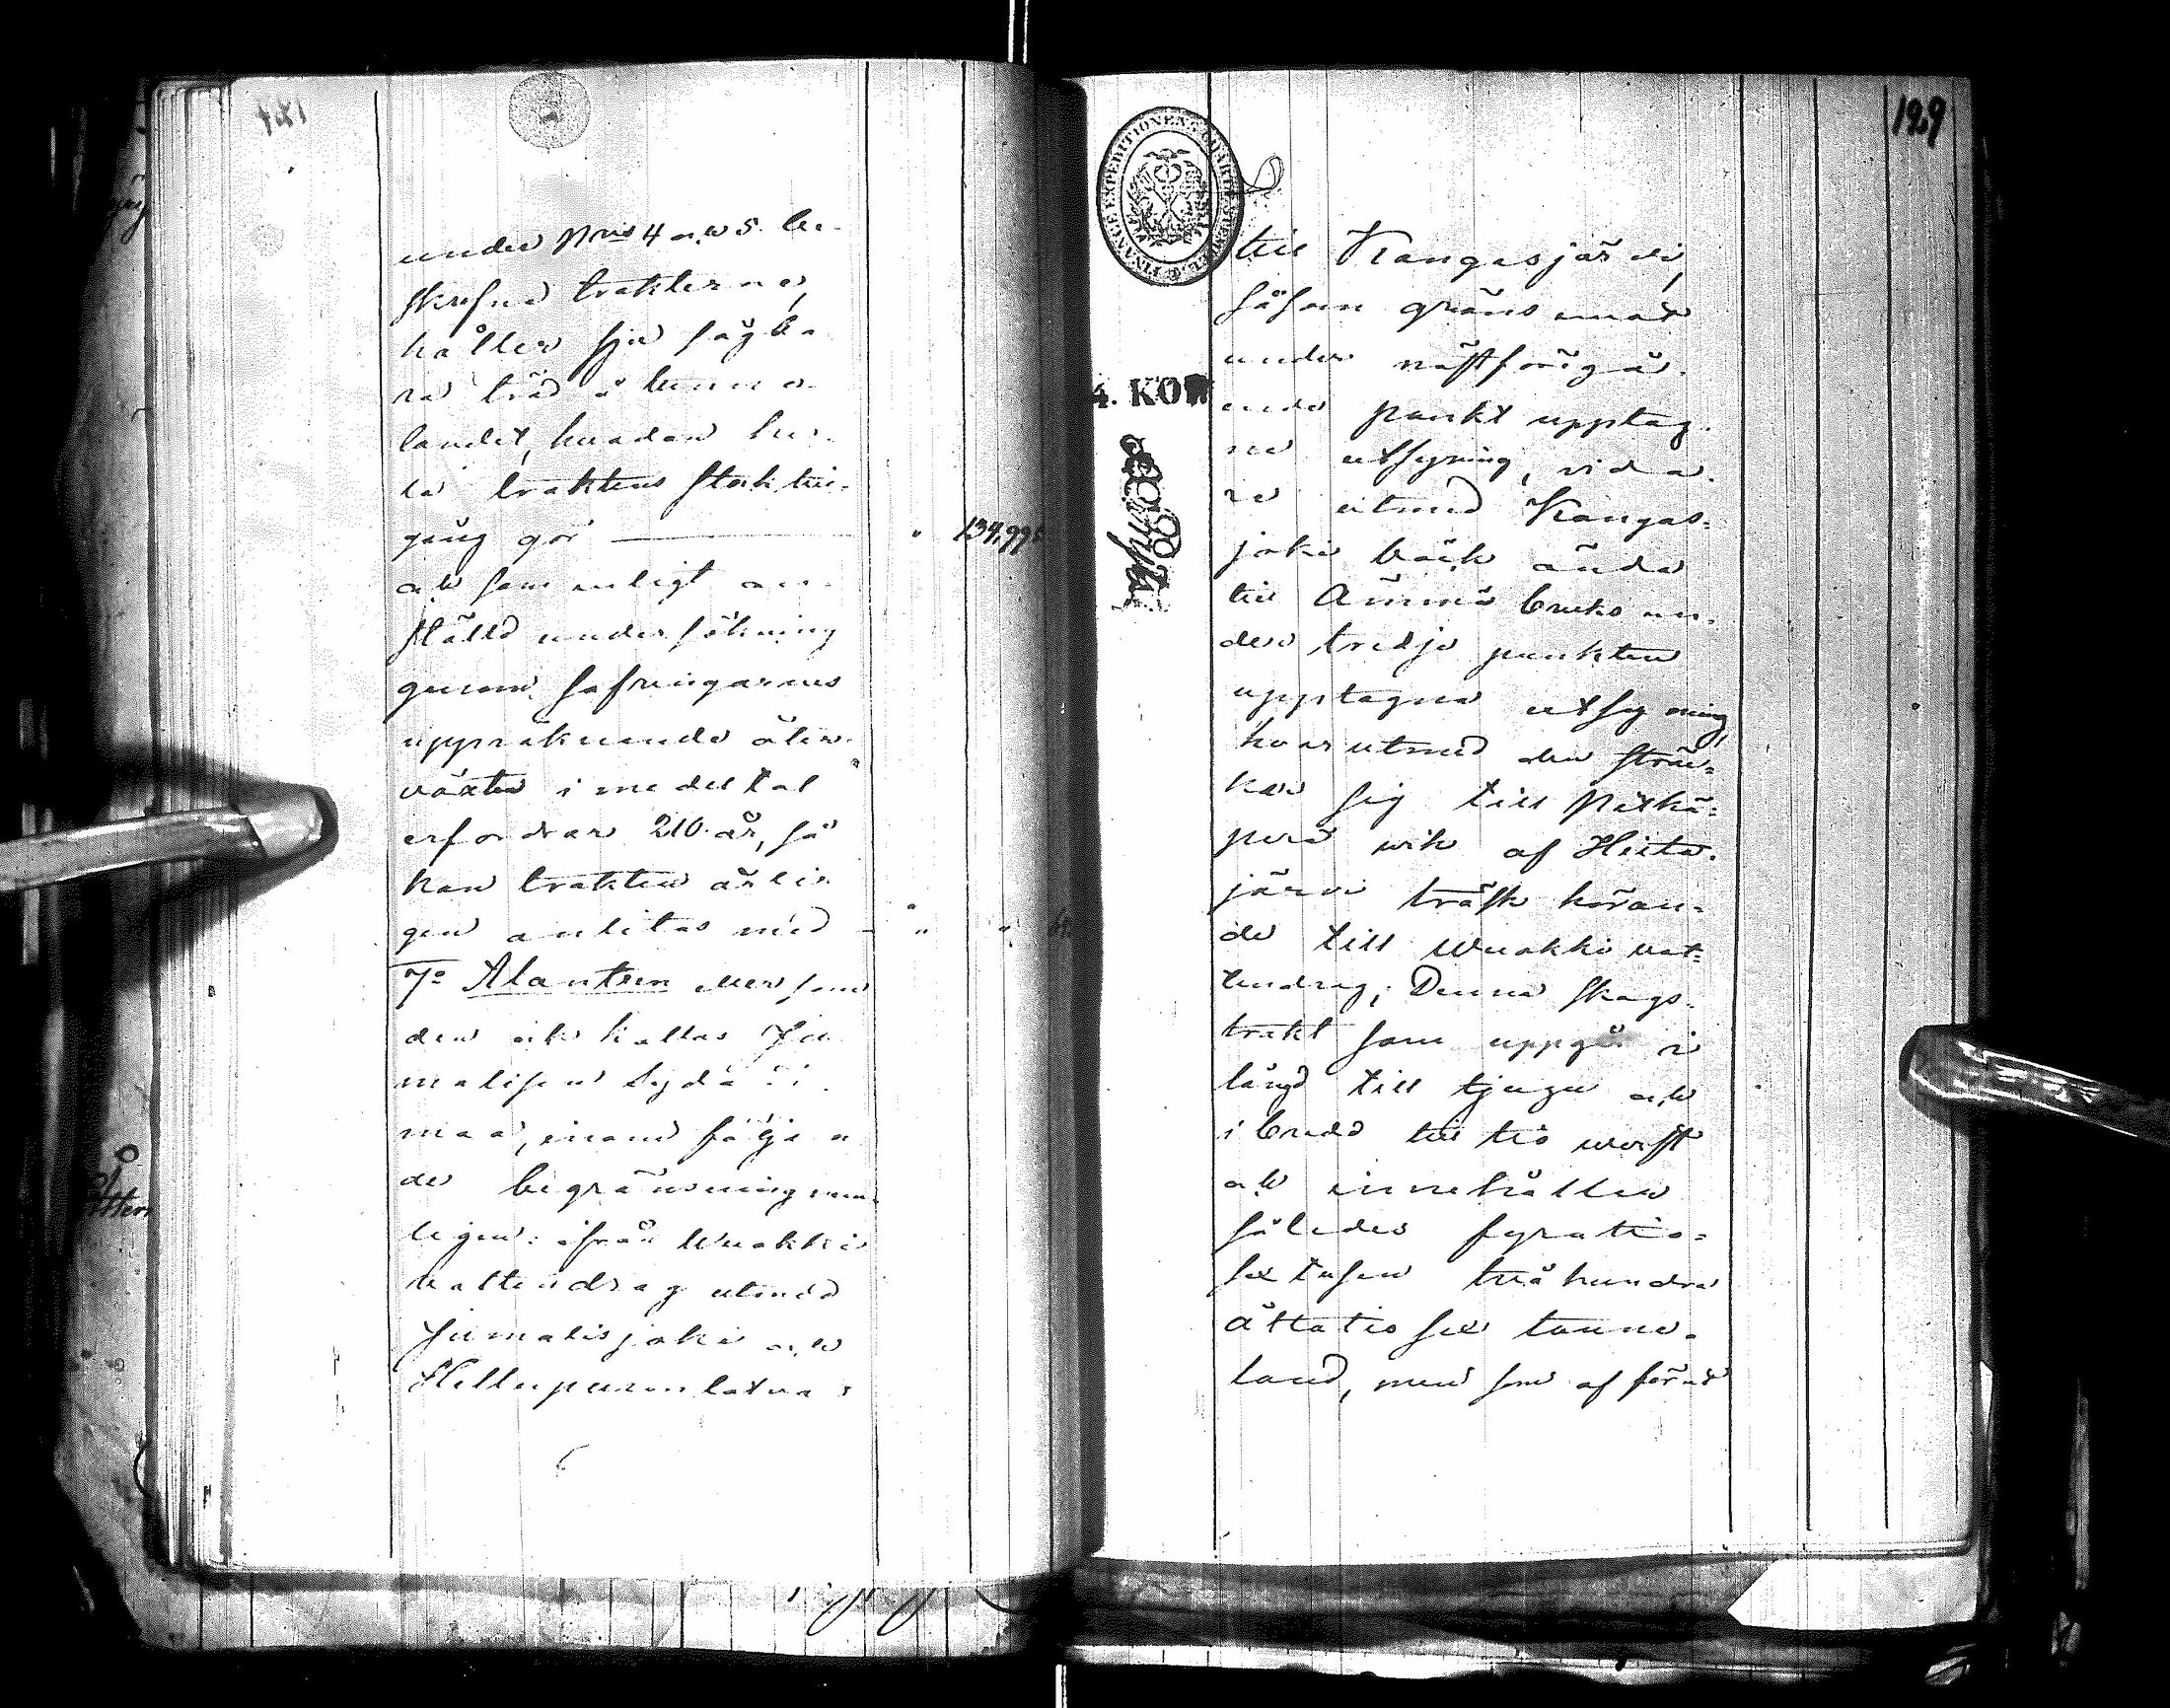 under Nris 4 och 5. be-
skrefna trakterna,
håller sju sågba-
ra träd å tunne-
landet, hvadan he-
la traktens stocktill-
gång gör — " 134,995
och som enligt an-
ställd undersökning
genom safringarnes
uppräknande åter-
växten i medeltal
erfordrar 210. år, så
kan trakten årli-
gen anlitas med - " "
7:o Alantsen eller som
den ock kallas Ju-
malisen Sydän-
maa, inom följan-
de begränsning nem-
ligen: ifrån Wuokki
vattendrag utmed
Jumalisjoki och
Hellupuron latva
129
FINANCE EXPEDITIONEN
4. KOP
till Kangasjärvi,
såsom gräns mot
under nästföregå-
ende punkt upptag-
ne utsyning, vida-
re utmed Kangas=
joki bäck ända
till Ämmä bruks un-
der tredje punkten
upptagna utsyning,
hvarutmed den sträc=
ker sig till Pitkä=
perä wik af Hieta-
järvi träsk höran=
de till Wuokki vat=
tendrag; Denna skogs-
trakt som uppgår i
längd till tjugu och
i bredd till tio werst
och innehåller
således fyratio=
sex tusen tvåhundra
åttatio sex tunne-
land, men som af förut